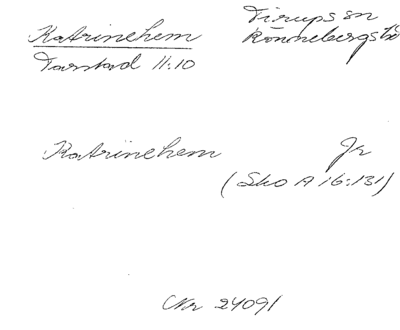 Katrinehem
Tirups sn
Tarstad 11:10
Rönnebergs hd
Katrinehem
Jr
(Sko A 16:131)
Nr 24091